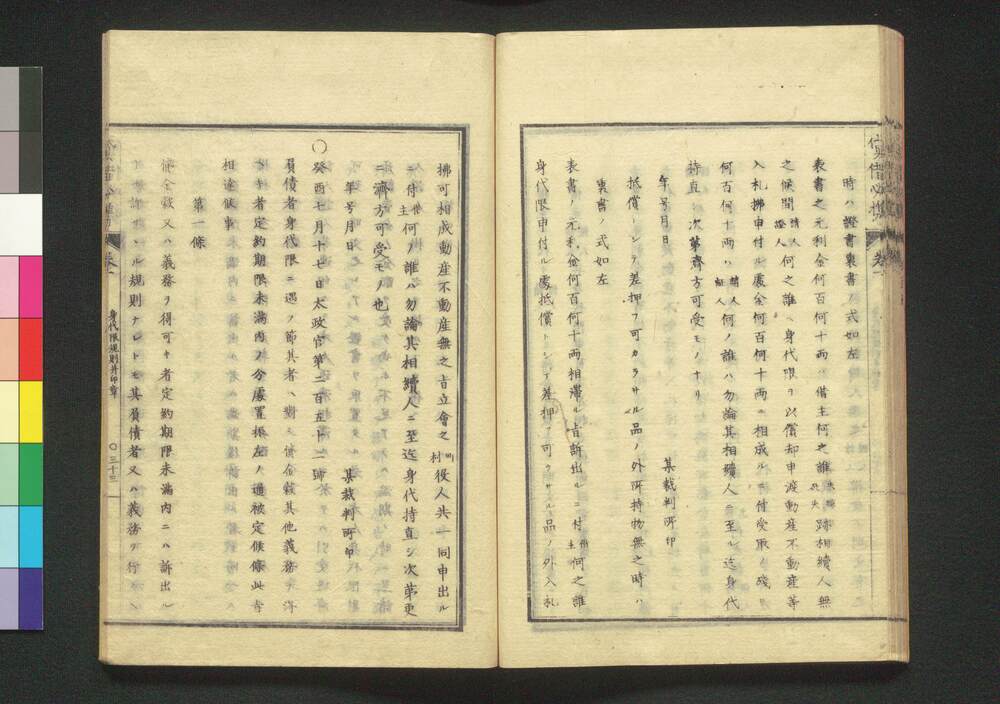 時ハ證書裏書ノ式如左
表書之元利金何百何十両ハ借主何之誰無跡死失跡相續人無
之候間請人證人何之誰ヘ身代限リ以償却申渡動産不動産等
入札拂申付ル處金何百何十両ニ相成ルニ付受取リ残
何百何十両ハ請人證人何ノ誰ハ勿論其相續人ニ至ル迄身代
持直シ次第済方可受モノナリ
年号月日
某裁判所印
抵償トシテ差押フ可カラサル品ノ外所持物無之時ハ
裏書ノ式如左
表書ノ元利金何百何十両相滞ル旨訴出ルニ付借主何之誰
身代限申付ル處抵償トシテ差押フ可カラサル品ノ外入札
拂可相成動産不動産無之旨立會之町村役人共一同申出ル
ニ付借主何ノ誰ハ勿論其相續人ニ至迄身代持直シ次第更
ニ済方可受モノ也
年号月日
某裁判所印
〇癸酉七月十七日太政官第二百五十二號
負債者身代限ニ遇フ節其者ヘ對シ貸金穀其他義務ヲ得
ヘキ者定約期限未満内ノ分處置振左ノ通被定候條此旨
相達候事
第一條
貸金穀又ハ義務ヲ得可キ者定約期限未満内ニハ訴出ル
ヲ許サヽル規則ナレトモ其負債者又ハ義務ヲ行
身代限規則并印章
〇三十三